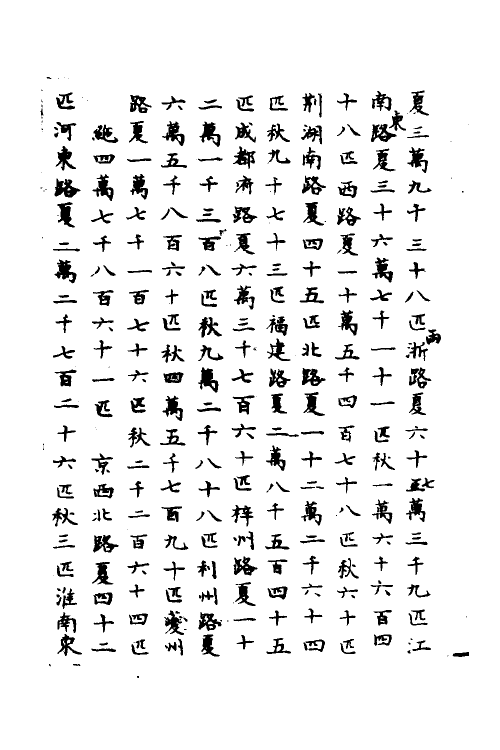 夏三萬九千三十八匹浙西路夏六十五七萬三千九匹江
南東路夏三十六萬七千一十一匹秋一萬六十六百四
十八匹西路夏一十萬五千四百七十八匹秋六十匹
荆湖南路夏四十五匹北路夏一十二萬二千六十四
匹秋九千七十三匹福建路夏二萬八千五百四十五
匹成都府路夏六萬三千七百六十匹梓州路夏一十
二萬一千三百八匹秋九萬二千八十八匹利州路夏
六萬五千八百六十匹秋四萬五千七百九十匹夔州
路夏一萬七千一百七十六匹秋二千二百六十四匹
絁四萬七千八百六十一匹 京西北路夏四十二
匹河東路夏二萬二千七百二十六匹秋三匹淮南東